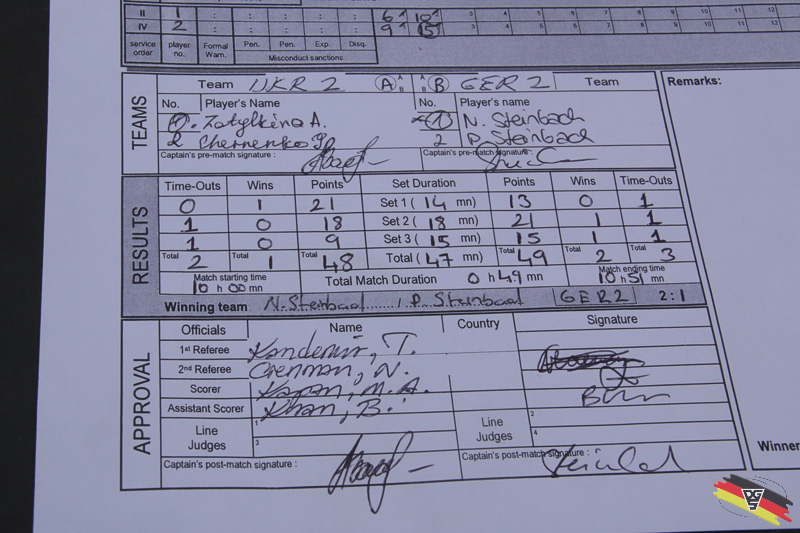 II 1 : : : : 6 10 3 4 5 6 7 8 9 10 11 12
IV 2 : : : : 9 15 3 4 5 6 7 8 9 10 11 12
service order player no. Formal Warn. Pen. Pen. Exp. Disq.
Misconduct sanctions
TEAMS
Team UKR 2 A A B A B B GER 2 Team
No. Player's Name No. Player's name
1. Zatylkina A. 1 N. Steinbach
2 Chernenko 2 P. Steinbach
Captain's pre-match signature : Captain's pre-match signature:
Remarks:
RESULTS
Time-Outs Wins Points Set Duration Points Wins Time-Outs
0 1 21 Set 1 ( 14 mn) 13 0 1
1 0 18 Set 2 ( 18 mn) 21 1 1
1 0 9 Set 3 ( 15 mn) 15 1 1
Total 2 1 Total 48 Total ( 47 mn) Total 49 2 Total 3
Match starting time 10 h 00 mn Total Match Duration 0 h 49 mn Match ending time 10 h 51 mn
Winning team N. Steinbach / P. Steinbach GER 2 2:1
APPROVAL
Officials Name Country Signature
1st Referee Kandemir, T.
2nd Referee
Scorer M.A.
Assistant Scorer Khan, B.
Line Judges 1 3 Line Judges 2 4
Captain's post-match signature : Captain's post-match signature :
Winner
DGS